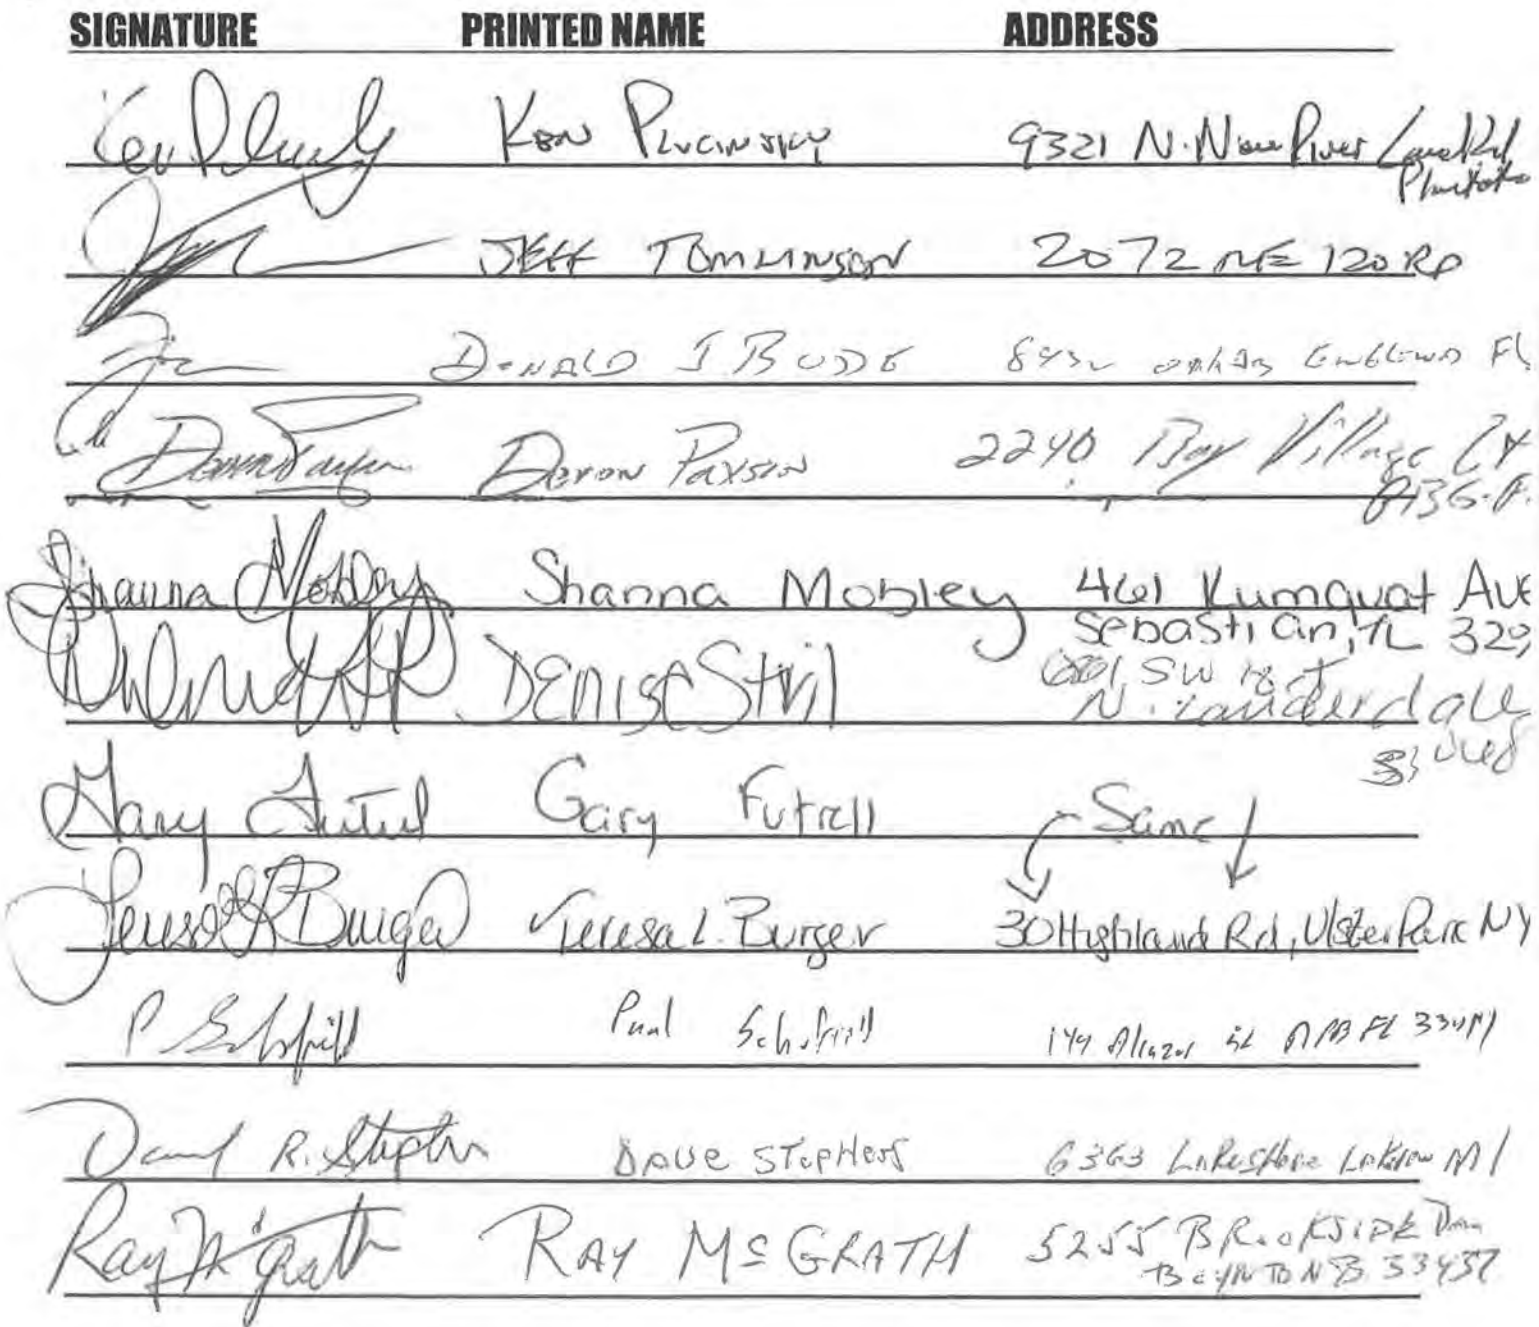 SIGNATURE PRINTED NAME ADDRESS
Ken Plucinsky 9321 N. New River Canal Rd
JEFF TOMLINSON 2072 NE 120 RD
DONALD J BUDDE Englewood FL
Devon Paxson 2240 Bay Village Ct
Shanna Mobley Shanna Mobley 461 Kumquat AVE
Sebastian, FL 329
DENISE SW
N. Lauderdale
Gary Futrell Gary Futrell Same
Teresa L Burger Teresa L. Burger 30 Highland Rd, Ulster Park NY
P Paul 149 Alcazar St FL
David R. Stephens DAVE STEPHENS 6363 Lakeshore MI
Ray McGrath RAY McGRATH 5255 BROOKSIDE
BOYNTON B. 33437